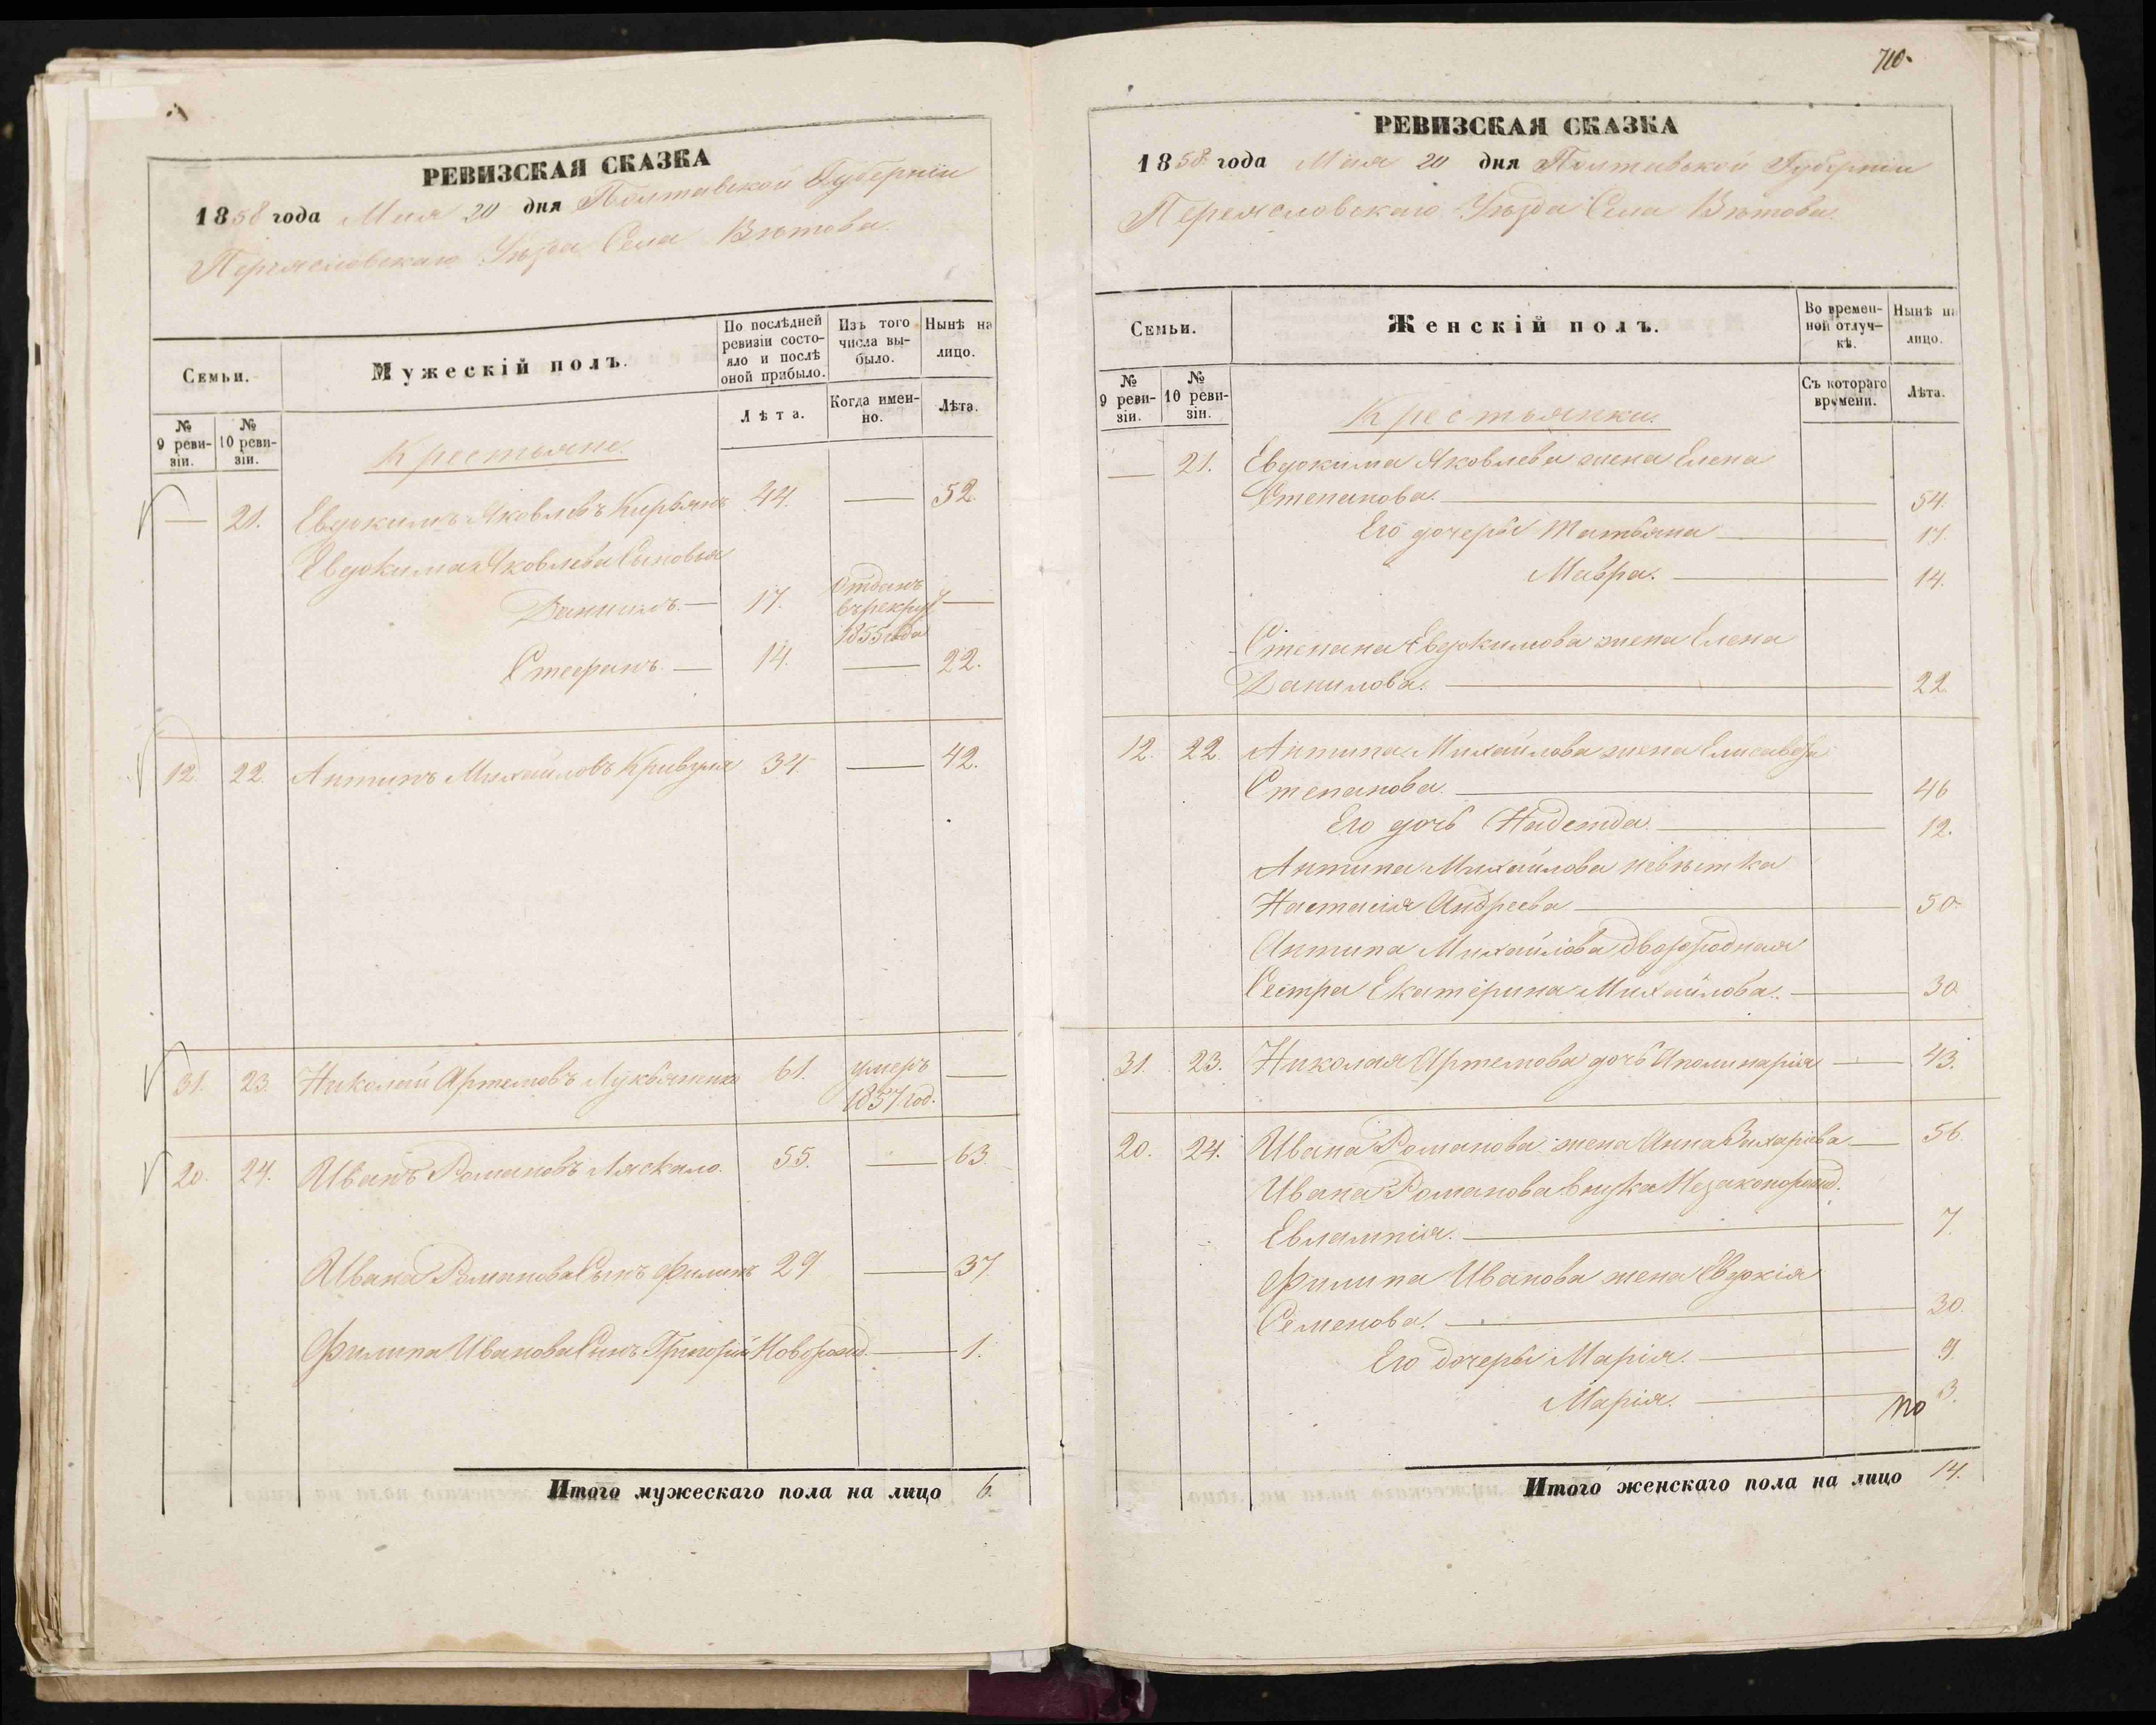 РЕВИЗСКАЯ СКАЗКА
1858 года Мая 20 дня Полтавской Губерніи
Переясловскаго Уѣзда Села Вьютова.
Семьи.
Мужескій полъ.
По послѣдней ревизіи состо-
яло и послѣ
оной прибыло.
Изъ того
числа вы-
было.
Нынѣ на
лицо.
№
9 реви-
зіи.
№
10 реви-
зіи.
Лѣта.
Когда имен-
но.
Лѣта.
Крестьяне.
— 21. Евдокимъ Яковлевъ Кирьянъ 44. — 52.
Евдокима Яковлева Сыновья
Даниилъ. — 17. Отданъ
въ рекруты
1855 года —
Стефанъ. — 14. — 22.
12. 22. Антипъ Михайловъ Кривуля 34. — 42.
31. 23. Николай Артемовъ Лукьяненко 61. умеръ
1857. год. —
20. 24. Иванъ Романовъ Ляскало. 55. — 63.
Ивана Романова Сынъ Филипъ 29 — 37.
Филипа Иванова Сынъ Григорій Новорожд. — 1.
Итого мужескаго пола на лицо 6.
710.
РЕВИЗСКАЯ СКАЗКА
1858 года Мая 20 дня Полтавской Губерніи
Переясловскаго Уѣзда Села Вьютова.
Семьи.
Женскій полъ.
Во времен-
ной отлуч-
кѣ.
Нынѣ на
лицо.
№
9 реви-
зіи.
№
10 реви-
зіи.
Съ котораго
времени.
Лѣта.
Крестьянки.
— 21. Евдокима Яковлева жена Елена
Степанова. — 54.
Его дочери Татьяна — 17.
Мавра. — 14.
Степана Евдокимова жена Елена
Данилова. — 22.
12. 22. Антипа Михайлова жена Елисавета
Степанова. — 46
Его дочь Надежда — 12.
Антипа Михайлова невѣстка
Настасія Андреева — 50.
Антипа Михайлова двоюродная
Сестра Екатерина Михайлова. — 30
31. 23. Николая Артемова дочь Аполинарія — 43.
20. 24. Ивана Романова жена Анна Захарьева — 56.
Ивана Романова внука Незаконорожд.
Евлампія. — 7.
Филипа Иванова жена Евдокія
Семенова. — 30.
Его дочери Марія. — 9.
Марія. — 3.
Итого женскаго пола на лицо 14.